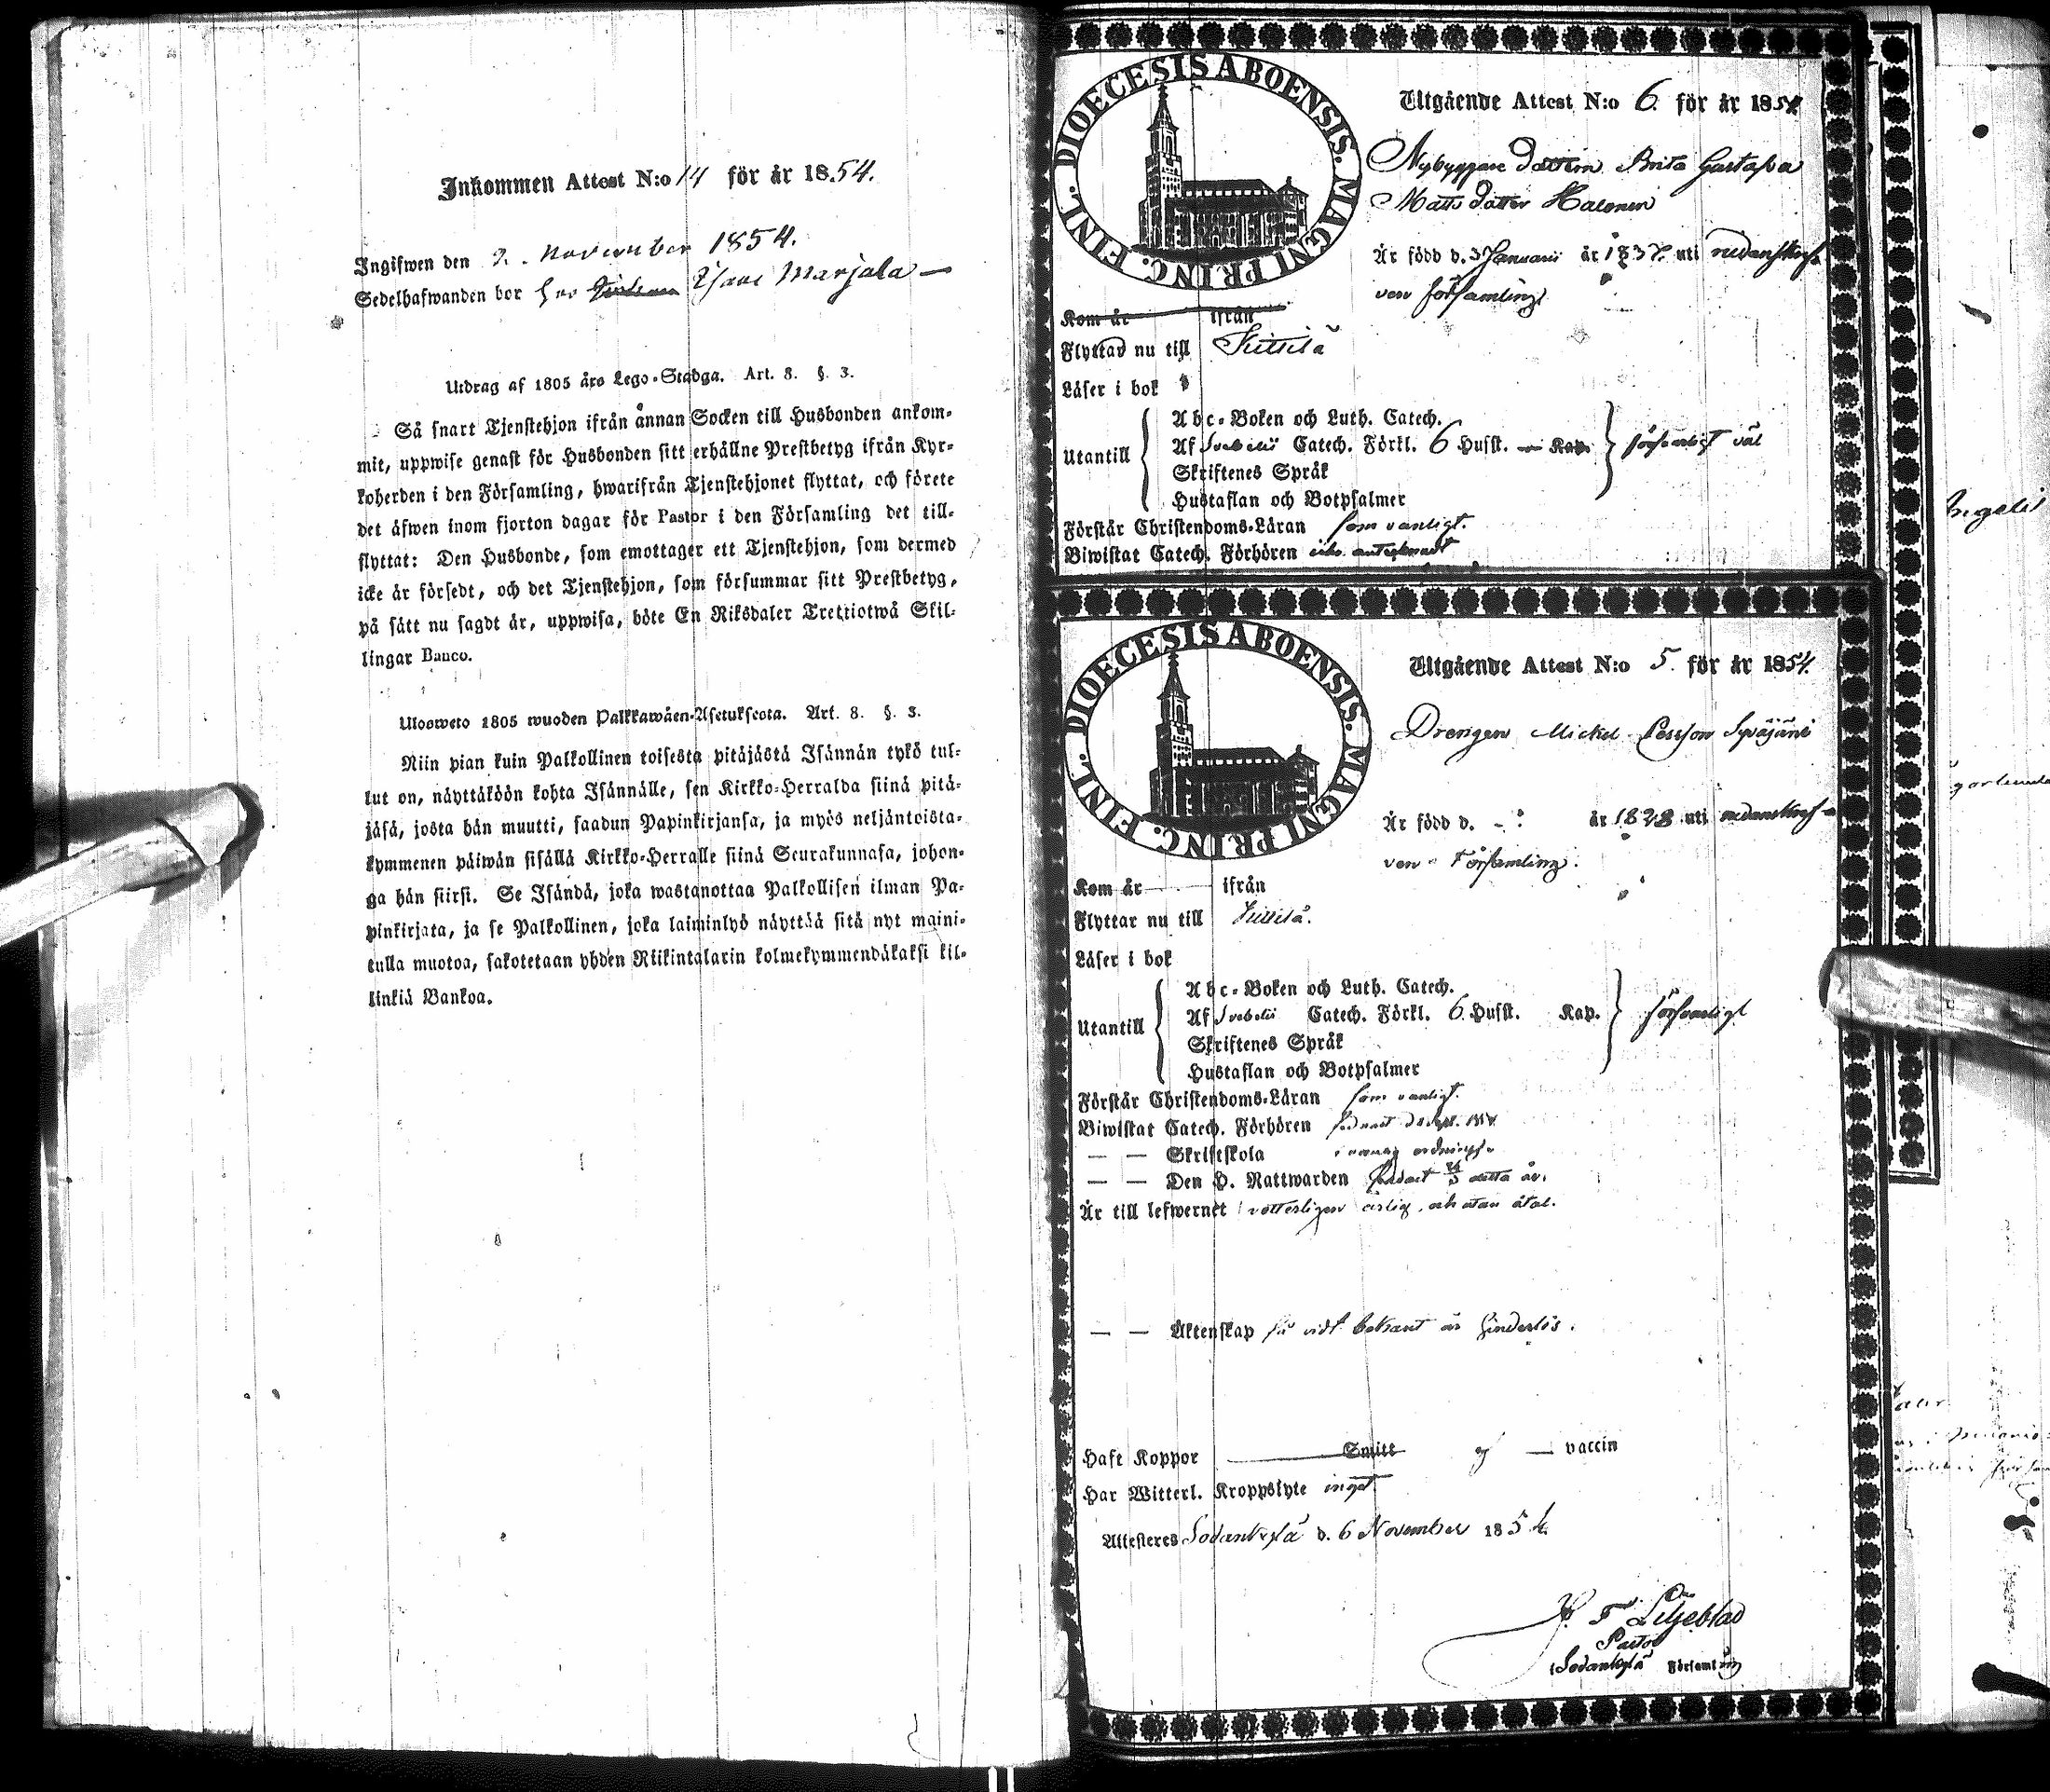 Inkommen Attest N:o 14 för år 1854.
Ingifwen den 2. November 1854.
Sedelhafwanden bor hos Isaac Marjala —
Utdrag af 1805 års Lego-Stadga. Art. 8. §. 3.
Så snart Tjenstehjon ifrån annan Socken till Husbonden ankom-
mit, uppwise genast för Husbonden sitt erhållne Prestbetyg ifrån Kyr-
koherden i den Församling, hwarifrån Tjenstehjonet flyttat, och förete
det äfwen inom fjorton dagar för Pastor i den Församling det till-
flyttat: Den Husbonde, som emottager ett Tjenstehjon, som dermed
icke är försedt, och det Tjenstehjon, som försummar sitt Prestbetyg,
på sätt nu sagdt är, uppwisa, böte En Riksdaler Trettiotwå Skil-
lingar Banco.
Ulosweto 1805 wuoden Palkkawäen-Asetuksesta. Art. 8. §. 3.
Niin pian kuin Palkollinen toisesta pitäjästä Isännän tykö tul-
lut on, näyttäköön kohta Isännälle, sen Kirkko-Herralda siinä pitä-
jäsä, josta hän muutti, saadun Papinkirjansa, ja myös neljäntoista-
kymmenen päiwän sisällä Kirkko-Herralle siinä Seurakunnasa, johon-
ga hän siirsi. Se Isändä, joka wastanottaa Palkollisen ilman Pa-
pinkirjata, ja se Palkollinen, joka laiminlyö näyttää sitä nyt maini-
tulla muotoa, sakotetaan yhden Riikintalarin kolmekymmendäkaksi kil-
linkiä Bankoa.
DIOECESIS ABOENSIS. MAGNI PRINC. FINL.
Utgående Attest N:o 6. för år 1854
Nybyggare Dottern Brita Gustafva
Matts dotter Halonen
Är född d. 3 Januarii år 1837. uti nedanskref-
ven församling
Kom år ifrån
Flyttar nu till Kittilä
Läser i bok
Abc-Boken och Luth. Catech.
Utantill Af Svebelii Catech. Förkl. 6 Husst. Kap. försvarligt väl
Skriftenes Språk
Hustaflan och Botpsalmer
Förstår Christendoms-Läran som vanligt.
Biwistat Catech. Förhören
DIOECESIS ABOENSIS. MAGNI PRINC. FINL.
Utgående Attest N:o 5. för år 1854.
Drengen Mickel Persson Sypäjärvi
Är född d. år 1828 uti nedanskref-
ven Församling.
Kom år ifrån
Flyttar nu till Kittilä.
Läser i bok
Abc-Boken och Luth. Catech.
Utantill Af Svebelii Catech. Förkl. 6 Husst. Kap. försvarligt
Skriftenes Språk
Hustaflan och Botpsalmer
Förstår Christendoms-Läran som vanligt.
Biwistat Catech. Förhören
— — Skriftskola
— — Den H. Nattwarden detta år.
Är till lefwernet ärlig och utan åtal.
— — Äktenskap så vidt bekant är hinderlös.
Haft Koppor Smitt ej — vaccin
Har Witterl. Kroppslyte inget
Attesteres Sodankylä d. 6 November 1854.
Liljeblad
Pastor
i Sodankylä Församling